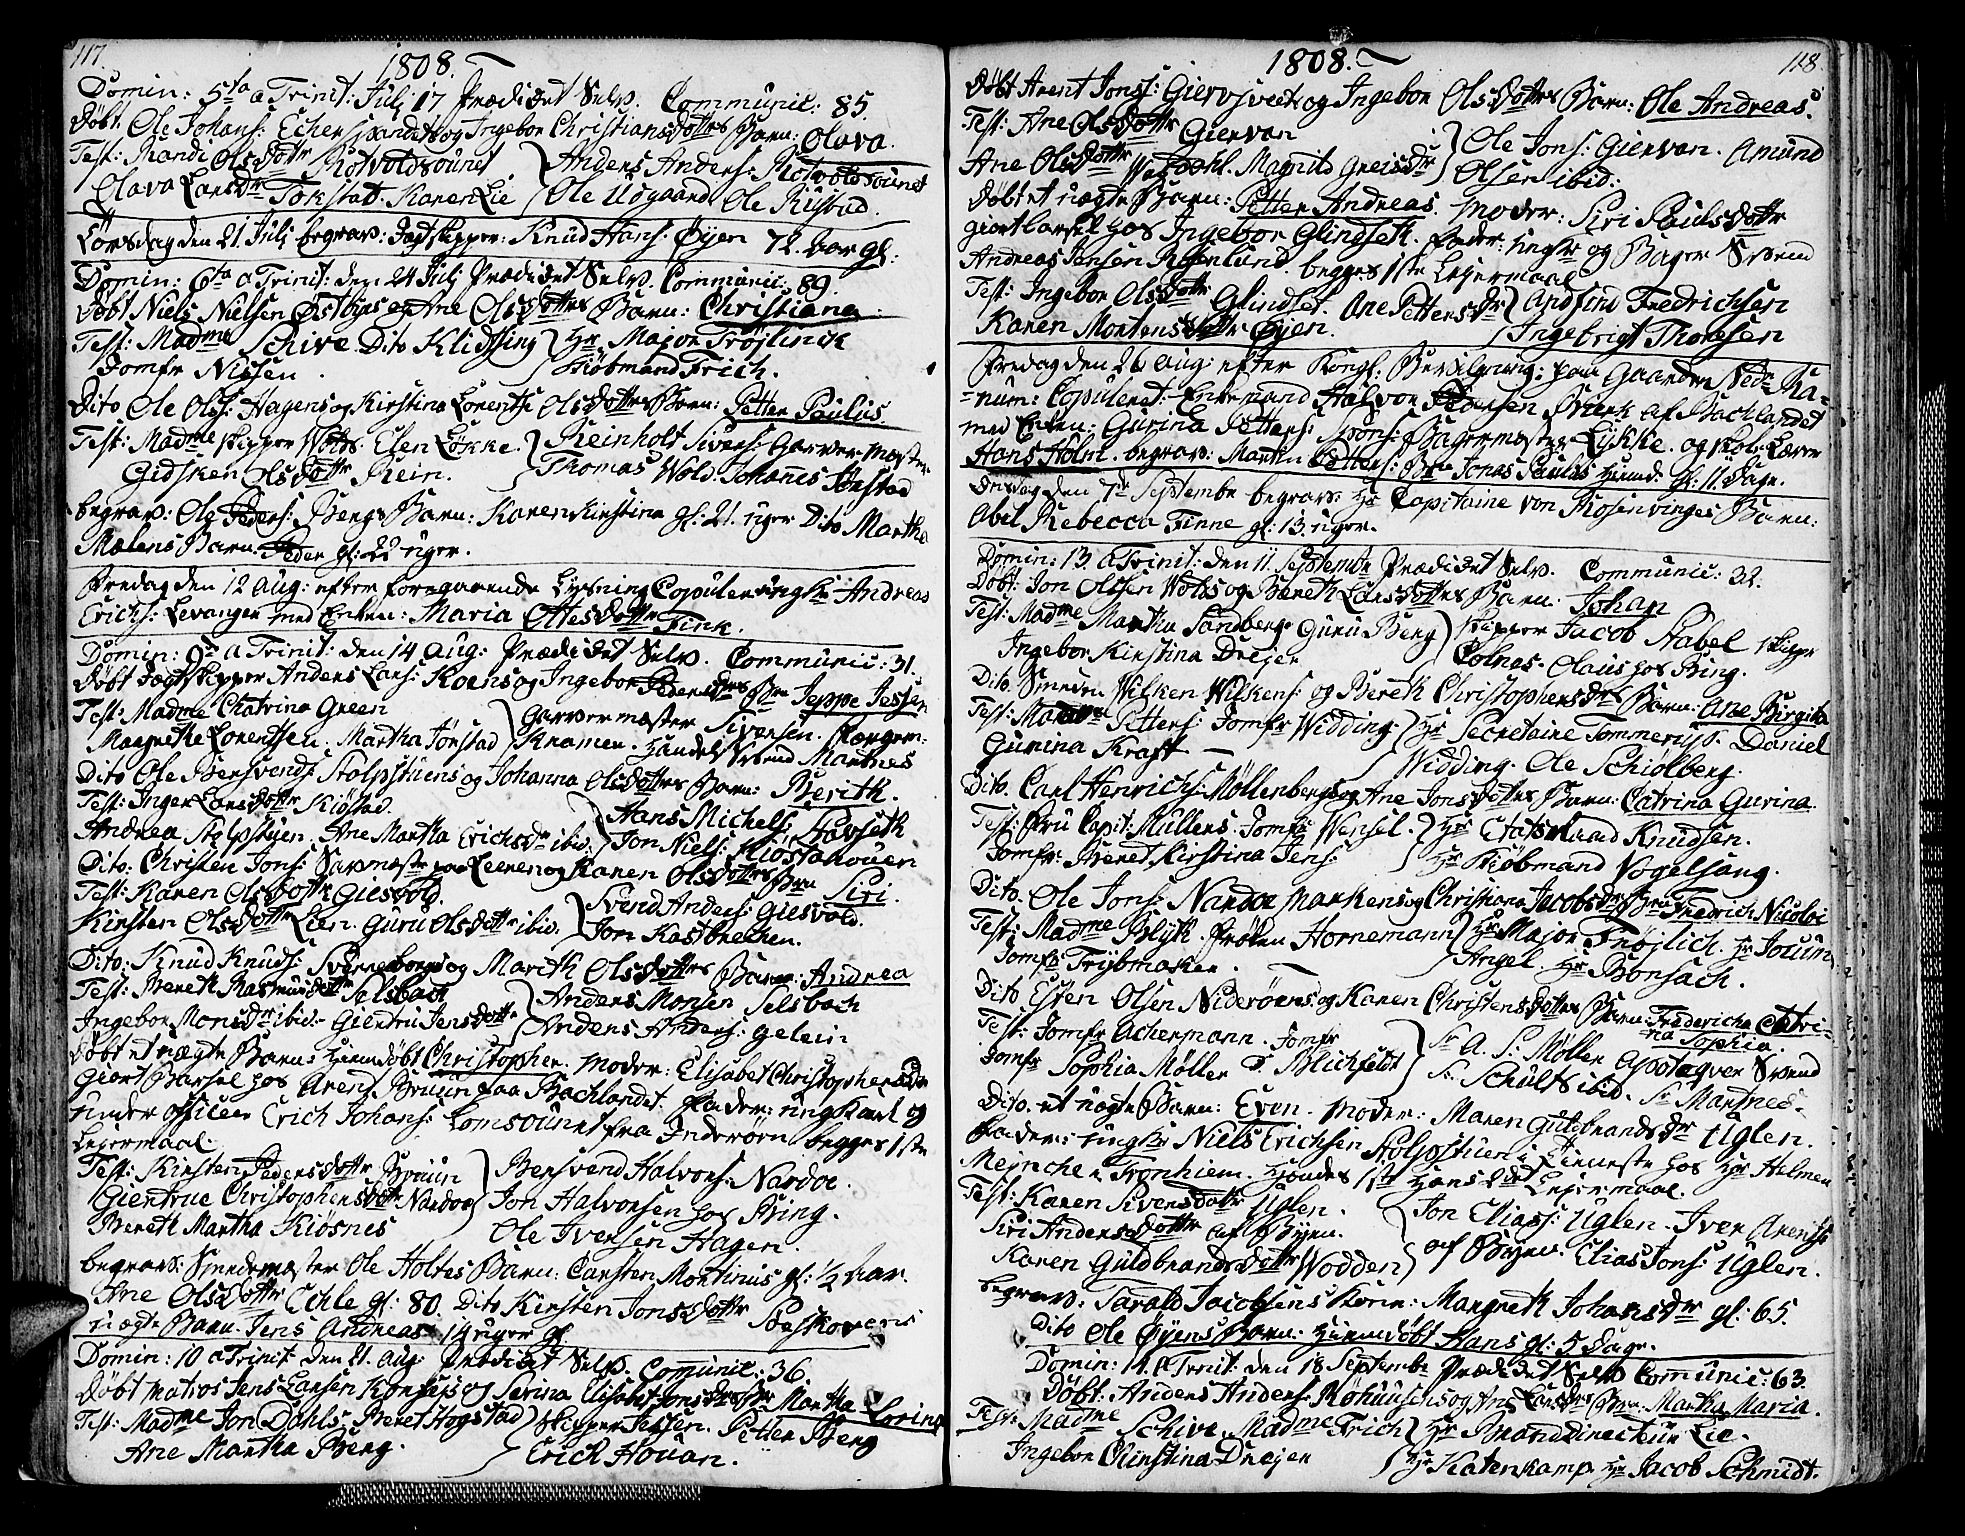 117.
1808.
Domin: 5ta a Trinit: Julj 17 Prædicet Selv. Communic: 85.
Døbt. Ole Johans: og Ingebor Christiansdottrs Barn: Olava.
Test: Randi Olsdottr Rotvoldsounet Anders Anders: Rotvoldsounet
Olava Larsdr Tokstad. Karen Lie Ole Udgaard Ole Rustad.
Torsdag den 21 Julj begrav: Jagtskipper: Knud Hans: Øyen 72 Aar gl:
Domin: 6ta a Trinit: den 24 Julj Prædicet Selv. Communic: 89.
Døbt Niels Nielsen og Ane Olsdottrs Barn: Christiane.
Test: Madme Schive. Dito Klidsing Hr Major Frøjlinck
Jomfr Nissen. Kiøbmand Frich.
Dito Ole Ols: Hagens og Kirstina Lorentse Olsdottrs Barn: Petter Paulus.
Test: Madme skipper Wols. Elen Løkke. Reinholt Sivers: Garvermæster
Gidsken Olsdottr Rein. Thomas Wold. Johanes Sørstad
begrav: Ole Peders: Bergs Barn: Karen Kirstina gl: 21. uger Dito Martha
Mælens Barn. Peder gl: 22 uger.
Fredag den 12 Aug: efter foregaaende Lysning Copuleret ungkr Andreas
Erichs: Levanger med Enken: Maria Ottesdottr Fink.
Domin: 9a a Trinit: den 14 Aug: Prædicet Selv. Communic: 31.
Døbt Jagtskipper Anders Lars: Koens og Ingebor Pedersdrs Brn Jeppe Jessen
Test: Madme Chatrina Green Garvermæster Sivertsen.
Margrethe Lorentsen. Martha Jørstad Kramer. Handels Svend Martnes
Dito Ole Bersvends: Stolpstuens og Johanna Olsdottrs Barn: Berith.
Test: Inger Larsdottr Kiøstad. Hans Michels: Havseth
Andrea Stolpstuen. Ane Martha Erichsdr ibid. Jon Niels: Kiøstahouen
Dito: Christen Jons: paa Leeren og Karen Olsdottrs Brn Siri.
Test: Karen Olsdottr Giesvold. Svend Anders: Giesvold.
Kirsten Olsdottr Lien. Guru Olsdottr ibid. Jon Kastbrechen.
Dito: Knud Knuds: Svenneborgs og Marith Olsdottrs Barn: Andrea
Test: Bereth Rasmusdottr Selsbach Anders Monsen Selsbach
Ingebor Monsdr ibid. Giertru Jensdottr Anders Anders: Gelein
Døbt et uægte Barn: hiemdøbt Christopher. Moder: Elisabet Christophersdr
Giort Barsel hos Arens Bruun paa Bachlandet. Fader: ungkarl og
under officeer Erich Johans: Lomsounet fra Inderøen begges 1ste
Lejermaal.
Test: Kirsten Pedersdottr Bruun Bersvend Halvors: Nardoe.
Giertrue Christophersdottr Nardoe Jon Halvorsen hos Bring.
Bereth Martha Kiøsnes Ole Iversen Hagen.
begrav: Smedemæster Ole Holtes Barn: Carsten Martinus gl: 1/2 Aar.
Ane Olsdottr Echle gl: 80. Dito Kirsten Jonsdottr
uægte Barn: Jens Andreas 14 uger gl.
Domin: 10 a Trinit: den 21. Aug: Prædicet Selv. Comunic: 36.
Døbt Matros Jens Larsen og Serina Elisabet Jonsdrs Br: Martha Lovina
Test: Madme Jon Dahls. Beret Hogstad Skipper Jessen. Petter Berg
Ane Martha Berg. Erich Houan.
1808.
118.
Døbt Arent Jons: og Ingebor Olsdottrs Barn: Ole Andreas.
Test: Ane Olsdottr Giervan Ole Jons: Giervan. Amund
Ane Olsdottr Magnild Greisdr Olsen ibid:
Døbt et uægte Barn: Petter Andreas. Moder: Siri Paulsdottr
giort barsel hos Ingebor Glindseth. Fader: ungkr og Bager Svend
Andreas Jensen Rosenlund. begges 1ste Lejermaal
Test: Ingebor Olsdottr Glindset. Ane Pettersdr Andfind Fredrichsen
Karen Mortensdottr Øyen. Ingebrigt Thoresen
Fredag den 26 Aug: efter Kongl: Bevilgning: paa Gaarden Nedr Ra-
num: Copuleret Enkemand Halvor Pedersen Bruk af Bachlandet
med Enken: Gurina Petters: Spons: Bagermæster Lykke. og skole Lærer
Hans Holm. begrav: Martin Petters: Brn Jonas Paulus hiemd: gl: 11. Dage.
Onsdag den 7de Septembr begrav: Hr Capitaine von Rosenvinges Barn:
Abel Rebecca Finne gl: 13. uger.
Domin: 13. a Trinit: den 11. Septembr Prædicet Selv. Communic: 32.
Døbt: Jon Oltsen Wols og Bereth Larsdottrs Barn: Johan
Test: Madme Martha Sandberg. Guru Berg Skipper Jacob Stabel skipper
Ingebor Kirstina Drejer Colnes. Olaus hos Bing.
Dito. Smeden Wilken Wilkens: og Bereth Christophersdrs Barn: Ane Birgita
Test: Madme Petters: Jomfr Widding. Hr Secretaire Tommerup. Daniel
Gurina Kraft — Widding. Ole Schiolberg.
Dito. Carl Henrichs: Møllenbergs og Ane Jonsdottrs Barn: Catrina Gurina.
Test: Fru Capit: Müllers. Jomfr Wensel. Hr Etatsraad Knudsen.
Jomfr: Beret Kirstina Jens: Hr Kiøbmand Vogelsang.
Dito. Ole Jons: Nardoe Markens og Christiana Jacobsdrs Brn: Fredrich Nicolai
Test: Madme Blyth. Frøken Hornemann Hr Major Frøjlich. Hr Jouum
Jomfr Frijbmaker. Angel Hr Bonsach.
Dito. Esten Olsen Niderøens og Karen Christensdottrs Barn: Fredericha Catri-
na Sophia.
Test: Jomfr Achermann. Jomfr Sr A. S. Møller Apoteqver Svend
Jomfr Sophia Møller D. Blichfeldt Sr Schults ibid. Sr Martnes.
Dito. et uægte Barn: Even. Moder: Maren Guldbrandsdr Uglen.
Fader: ungkr Niels Erichsen Stolpstuen i Tieneste hos Hr Helmer
Meincke i Tronhiem. Hendes 1ste Hans 2det Lejermaal.
Test: Karen Siversdottr Uglen. Jon Elias: Uglen. Iver Arents:
Siri Andersdottr af Byen. af Byen. Elias Jons: Uglen.
Karen Guldbrandsdottr Wodden
begrav: Tarald Jacobsens kone: Margreth Johansdr gl: 65.
Dito Ole Øyens Barn: hiemdøbt Hans gl: 5 Dage.
Domin: 14 a Trinit: den 18 Septembr Prædicet Selv Comunic: 63.
Døbt: Anders Anders: og Ane Larsdrs Brn: Martha Maria.
Test: Madme Schive. Madme Frich Hr Brand Directeur Lie.
Ingebor Christina Drejer Hr Katenkamp. Hr Jacob Schmidt.